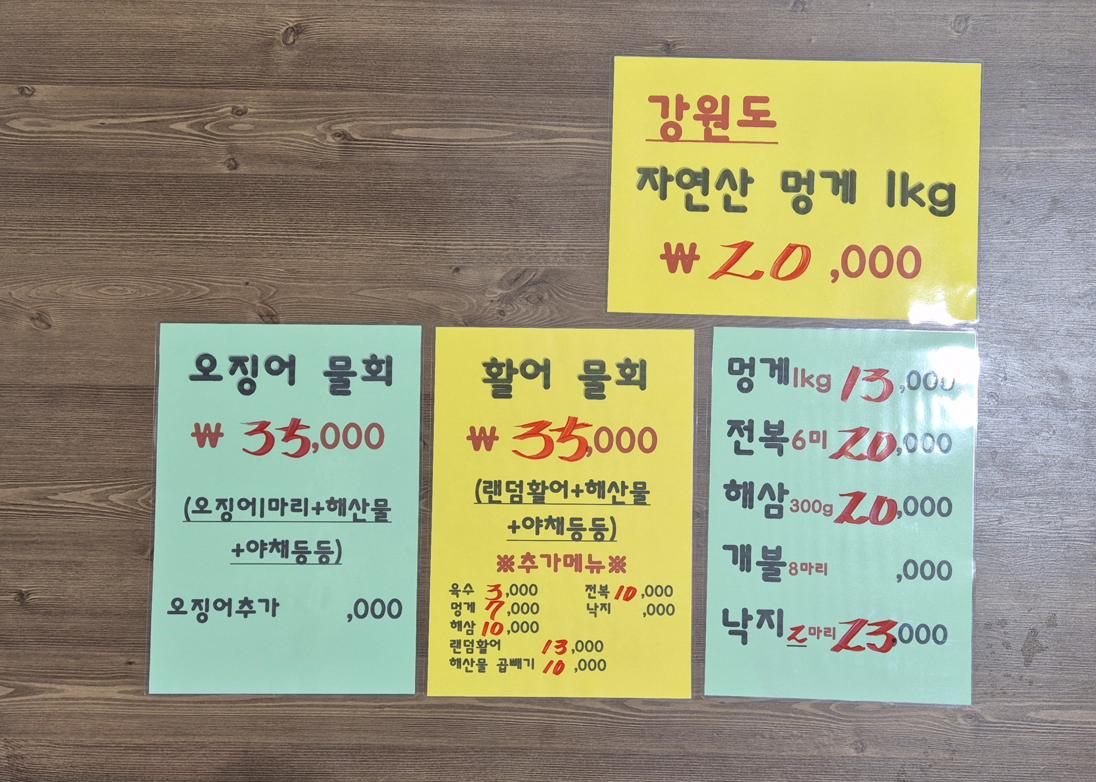 강원도
자연산 멍게 1kg
₩ 20,000
오징어 물회
₩ 35,000
(오징어1마리+해산물
+야채등등)
오징어추가 ,000
활어 물회
₩ 35,000
(랜덤활어+해산물
+야채등등)
※추가메뉴※
육수 3,000 전복 10,000
멍게 7,000 낙지 ,000
해삼 10,000
랜덤활어 13,000
해산물 곱빼기 10,000
멍게1kg 13,000
전복6미 20,000
해삼300g 20,000
개불8마리 ,000
낙지2마리 23,000